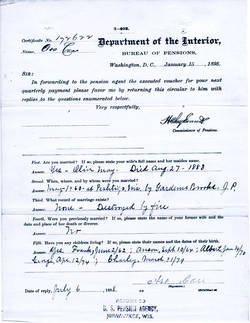 3-402.
Certificate No. 172622
Name, Geo Cox
Department of the Interior,
BUREAU OF PENSIONS,
Washington, D. C., January 15, 1898.
SIR:
In forwarding to the pension agent the executed voucher for your next
quarterly payment please favor me by returning this circular to him with
replies to the questions enumerated below.
Very respectfully,
Commissioner of Pensions.
First. Are you married? If so, please state your wife's full name and her maiden name.
Yes - May. Died Aug-27-1883
Second. When, where, and by whom were you married?
May-1-60-at Wis by Gardener Brooks J.P.
Third. What record of marriage exists?
None - Destroyed by fire
Fourth. Were you previously married? If so, please state the name of your former wife and the
date and place of her death or divorce.
No
Fifth. Have you any children living? If so, please state their names and the dates of their birth.
Yes Frank June 2/62; Sept 10/64; Albert Jan 16/70
Charley March 11/70
Geo Cox
Date of reply, July 6, 1898.
U. S. PENSION AGENCY,
MILWAUKEE, WIS.